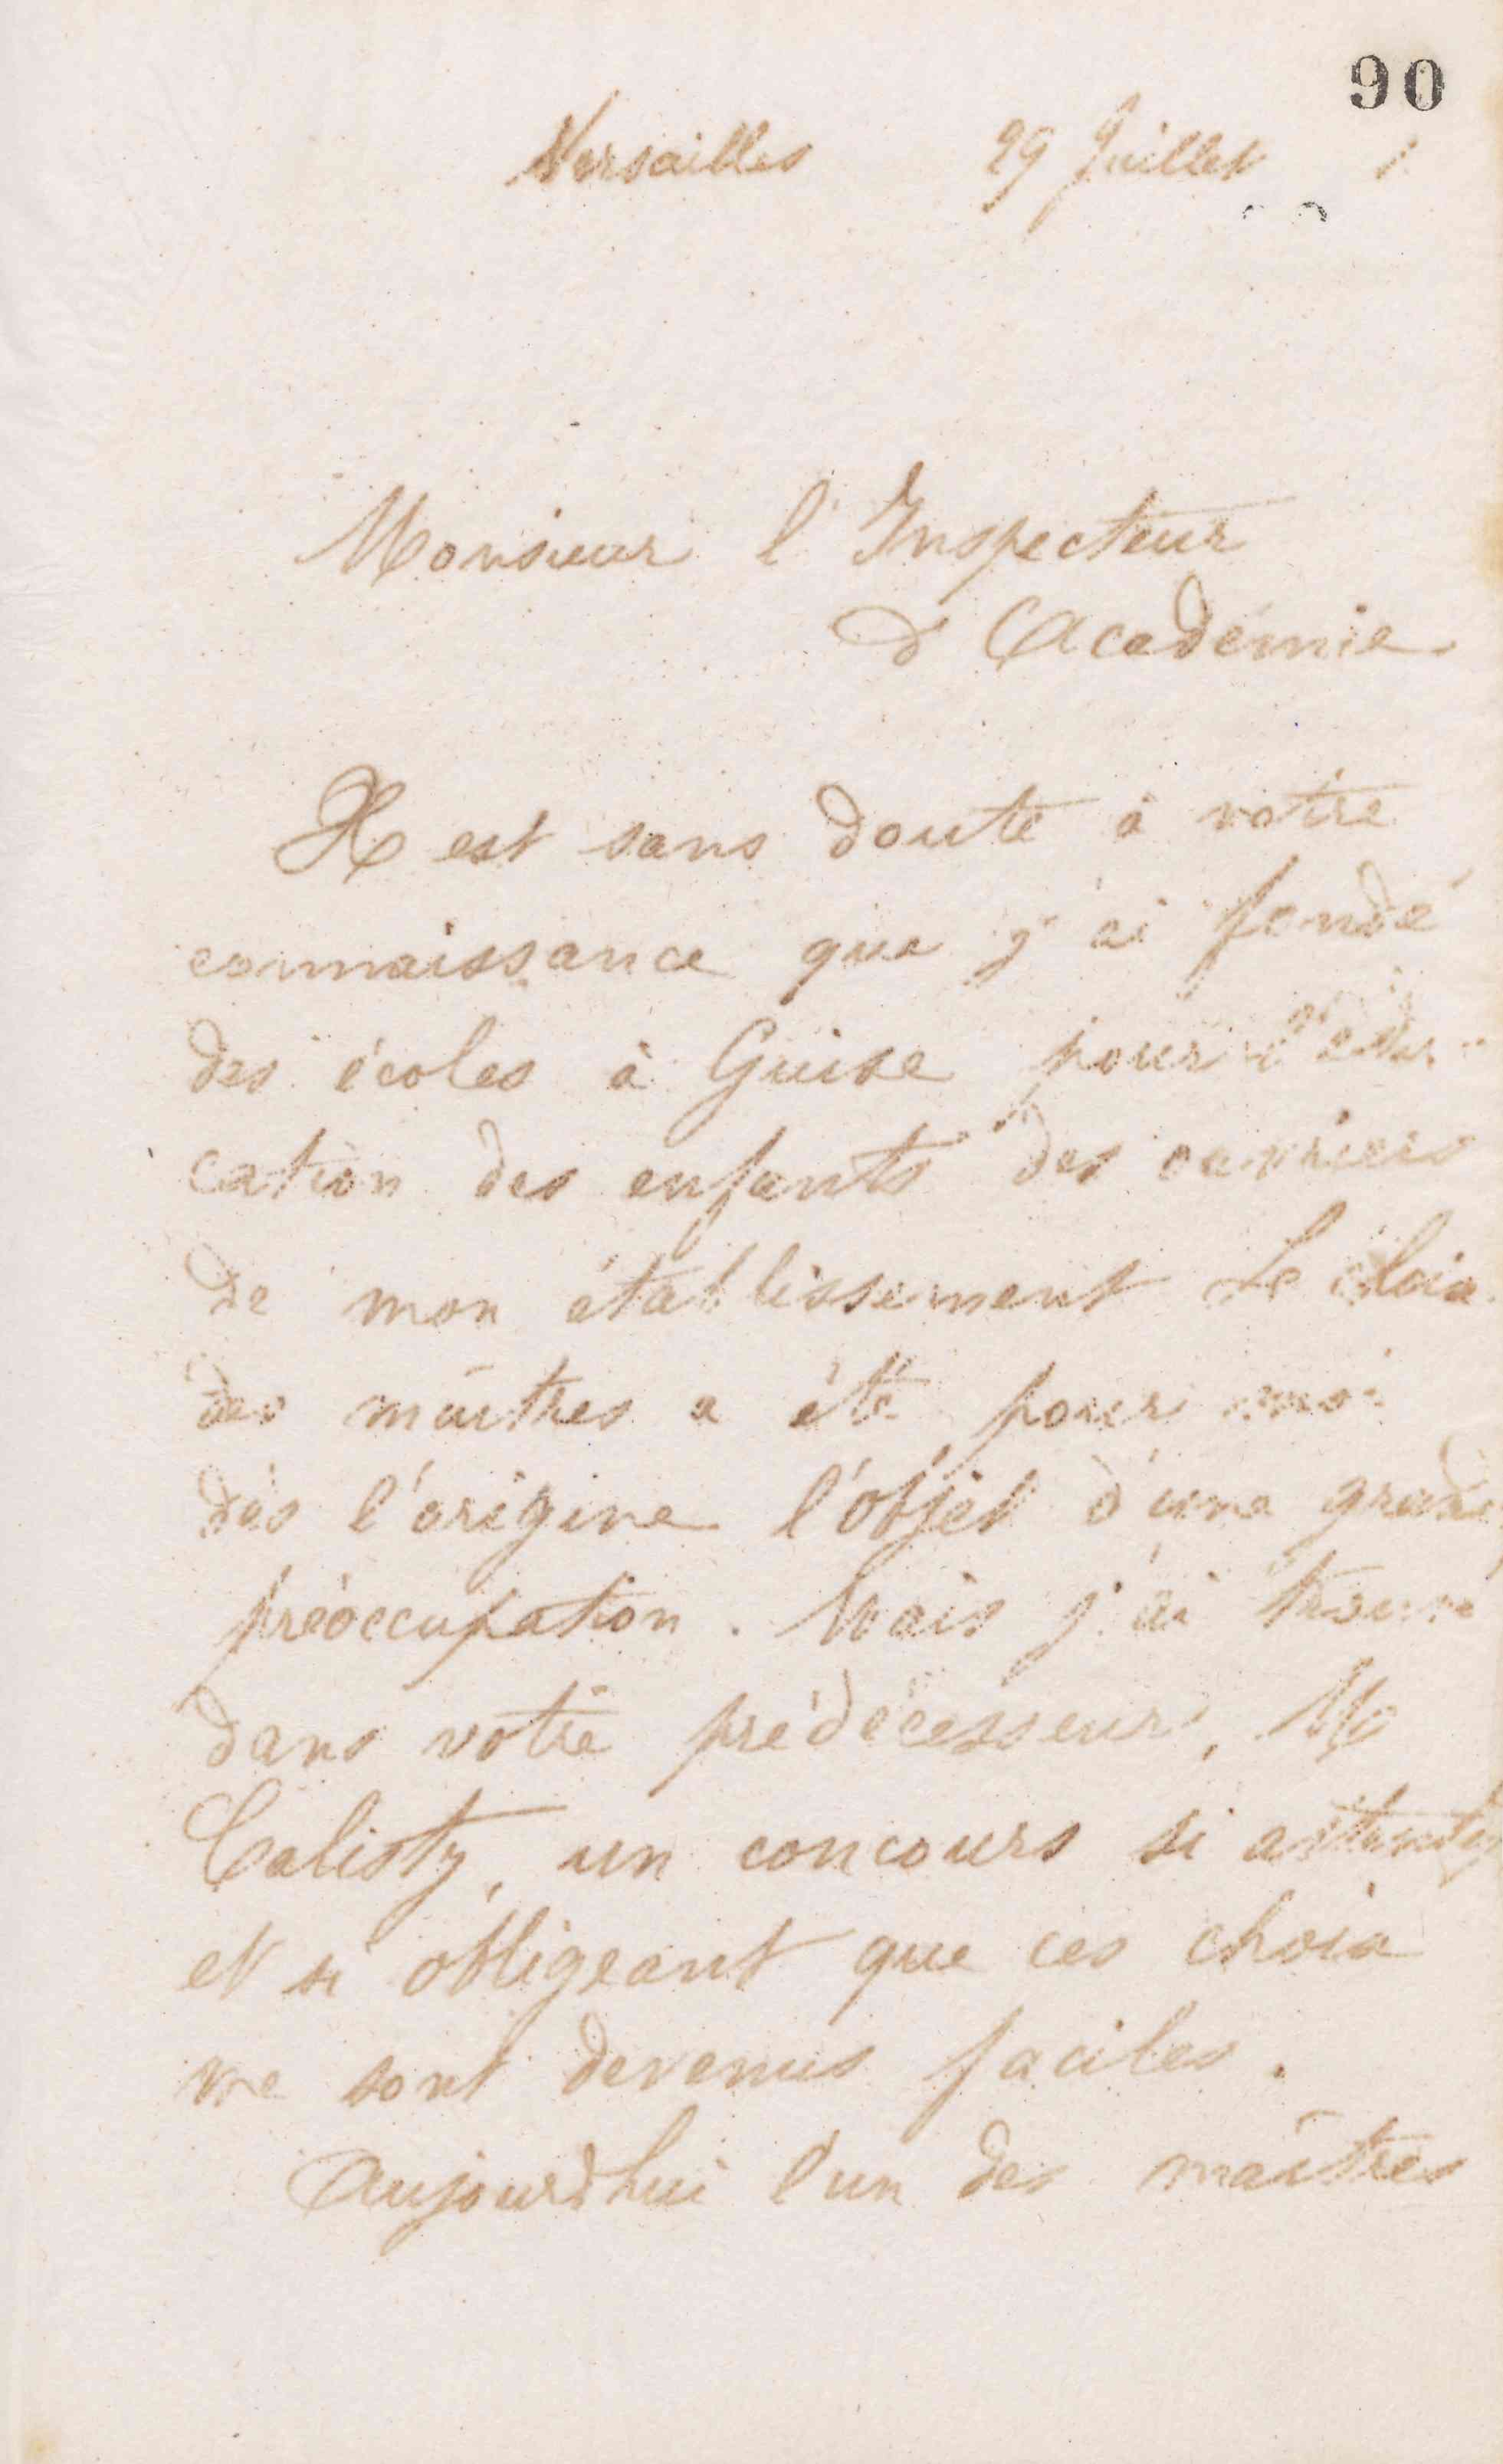 90
Versailles 29 Juillet 1
Monsieur l'Inspecteur
d'Académie
Il est sans doute à votre
connaissance que j'ai fondé
des écoles à Guise pour l'édu-
cation des enfants des ouvriers
de mon établissement Le choix
des maîtres a été pour moi
dès l'origine l'objet d'une grande
préoccupation. Mais j'ai trouvé
dans votre prédécesseur, Mr
Calisty, un concours si
et si obligeant que ces choix
me sont devenus faciles.
Aujourd'hui l'un des maîtres